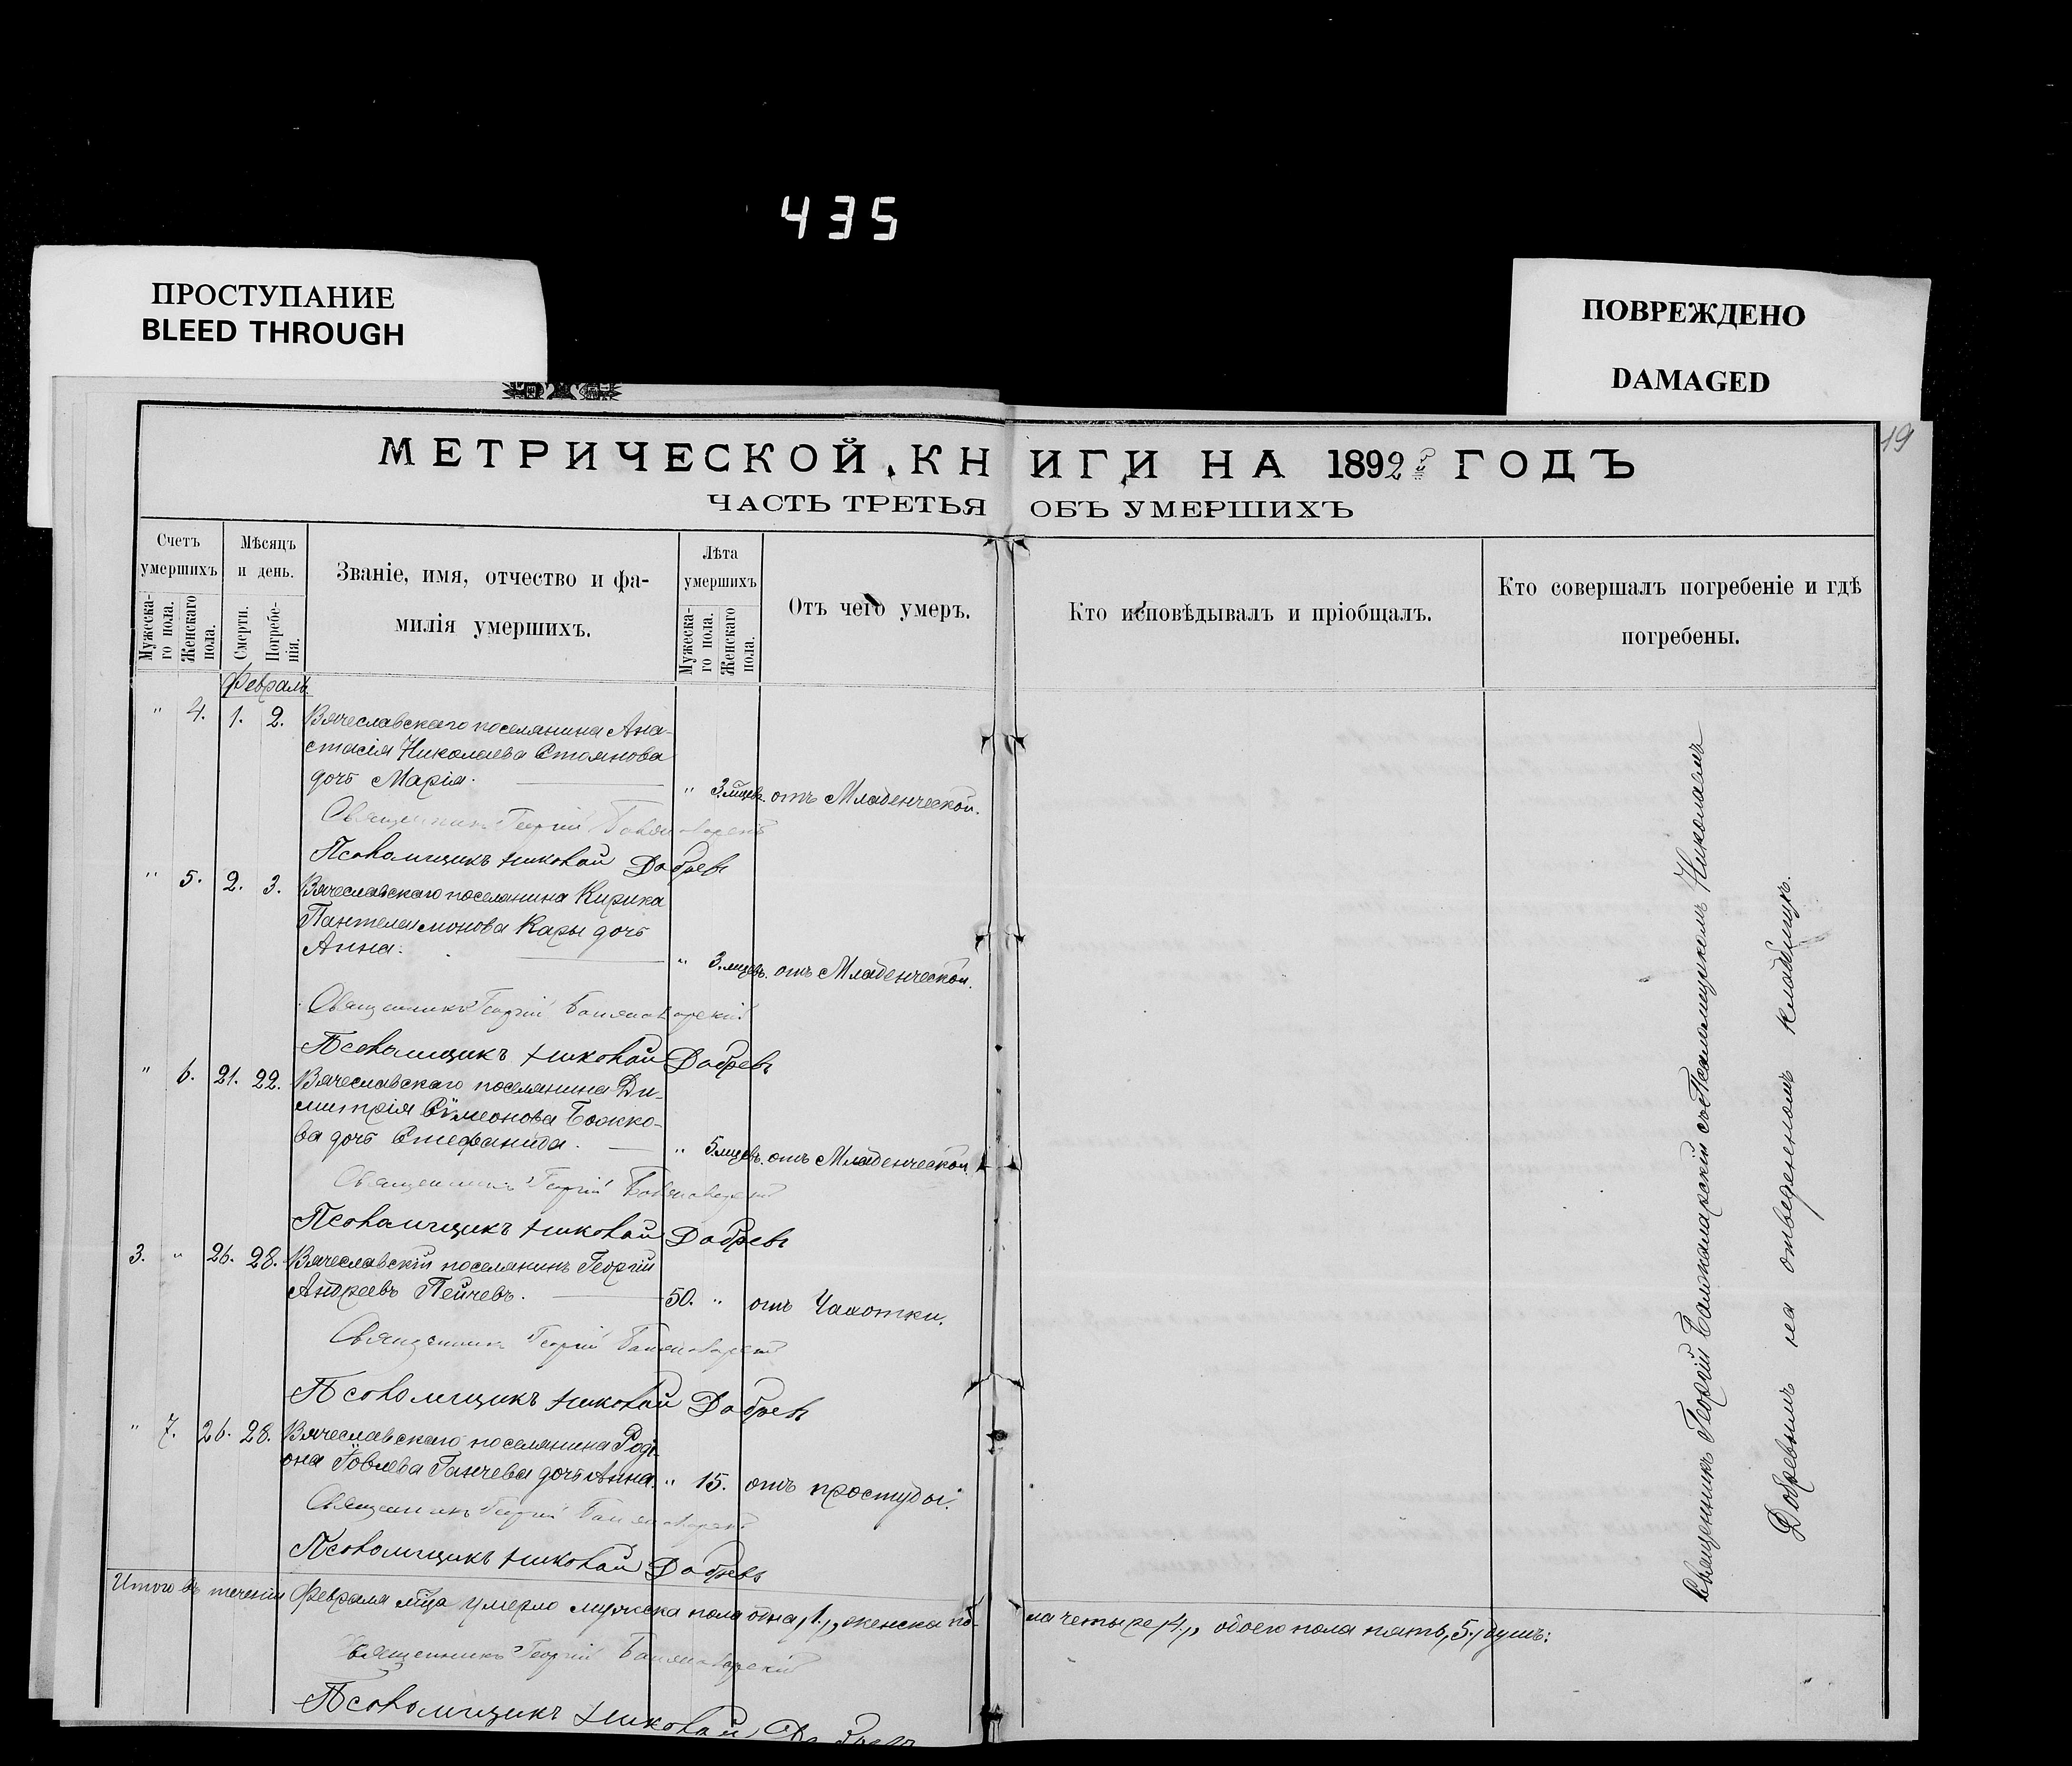 435
ПРОСТУПАНИЕ
BLEED THROUGH
ПОВРЕЖДЕНО
DAMAGED
19
МЕТРИЧЕСКОЙ КНИГИ НА 1892й ГОДЪ
ЧАСТЬ ТРЕТЬЯ ОБЪ УМЕРШИХЪ
Счетъ умершихъ
Мужеска-го пола.
Женскаго пола.
Мѣсяцъ и день.
Смерти.
Погребе-нія.
Званіе, имя, отчество и фа-
милія умершихъ.
Лѣта умершихъ
Мужеска-го пола.
Женскаго пола.
Отъ чего умеръ.
Кто исповѣдывалъ и пріобщалъ.
Кто совершалъ погребеніе и гдѣ
погребены.
Февраль.
" 4. 1. 2. Вячеславскаго поселянина Ана-
стасія Николаева Стоянова
дочь Марія. " 3.мцевъ. отъ Младенческой.
Священникъ Георгій
Псаломщикъ Николай Добревъ
" 5. 2. 3. Вячеславскаго поселянина Кирика
Пантелеимонова Кары дочь
Анна. " 3.мцевъ. отъ Младенческой.
Священникъ Георгій
Псаломщикъ Николай Добревъ
" 6. 21. 22. Вячеславскаго поселянина Ди-
митрія Сѵмеонова Божко-
ва дочь Стефанида. " 5.мцевъ. отъ Младенческой
Священникъ Георгій
Псаломщикъ Николай Добревъ
3. " 26. 28. Вячеславскій поселянинъ Георгій
Андреевъ Пейчевъ. 50. " отъ Чахотки.
Священникъ Георгій
Псаломщикъ Николай Добревъ
" 7. 26. 28. Вячеславскаго поселянина Роді-
она Іовлева Ганчева дочь Анна. " 15. отъ простуды.
Священникъ Георгій
Псаломщикъ Николай Добревъ
Итого въ теченіи Февраля мѣца умерло мужеска пола одна, 1., женска по-
ла четыре, 4., обоего пола пять, 5., душъ:
Священникъ Георгій
Псаломщикъ Николай Добревъ
Священникъ Георгій съ Псаломщикомъ Николаемъ
Добревымъ на отведеномъ кладбищѣ.